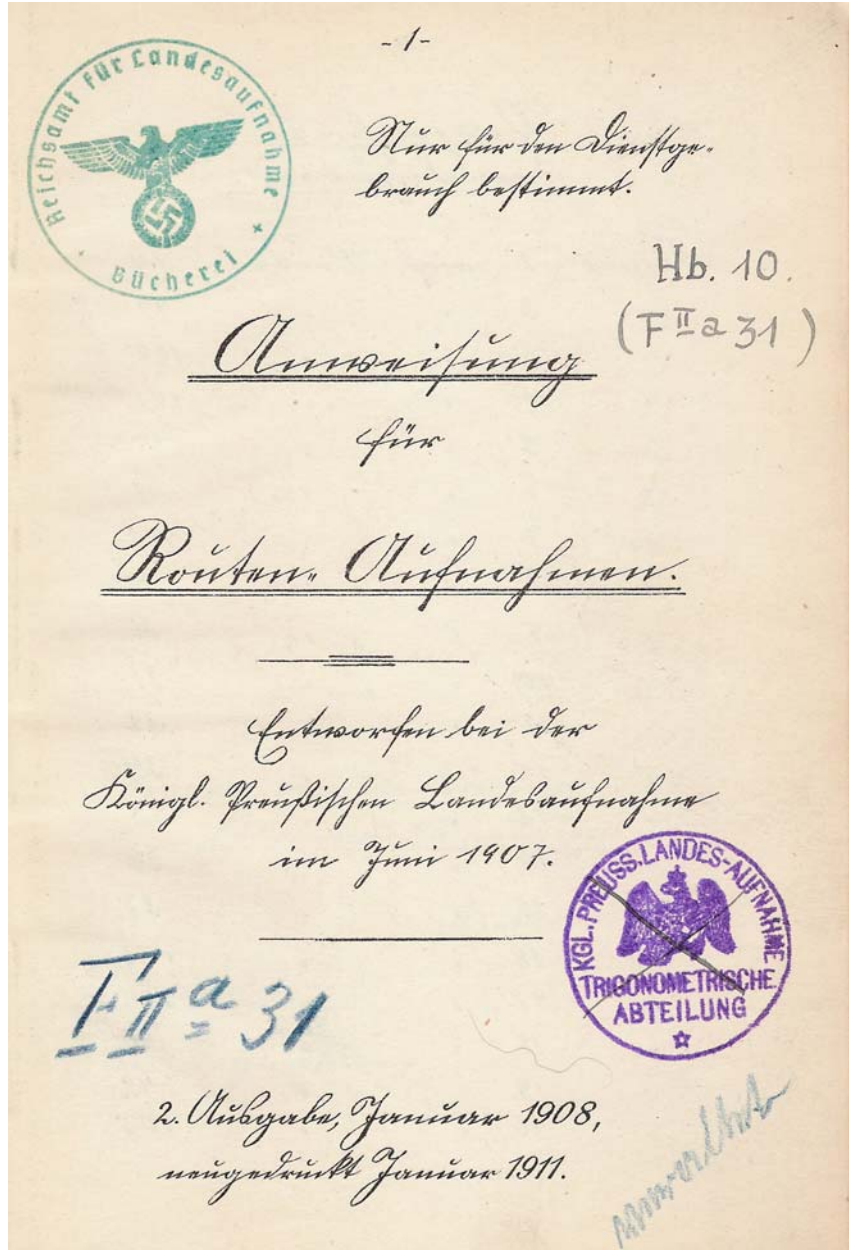 - 1 -
Reichsamt für Landesaufnahme
Bücherei
Nur für den Dienstge-
brauch bestimmt.
Hb. 10.
(F II a 31)
Anweisung
für
Routen-Aufnahmen.
Entworfen bei der
Königl. Preußischen Landesaufnahme
im Juni 1907.
KGL. PREUSS. LANDES-AUFNAHME
TRIGONOMETRISCHE
ABTEILUNG
F II a 31
2. Ausgabe, Januar 1908,
neugedruckt Januar 1911.